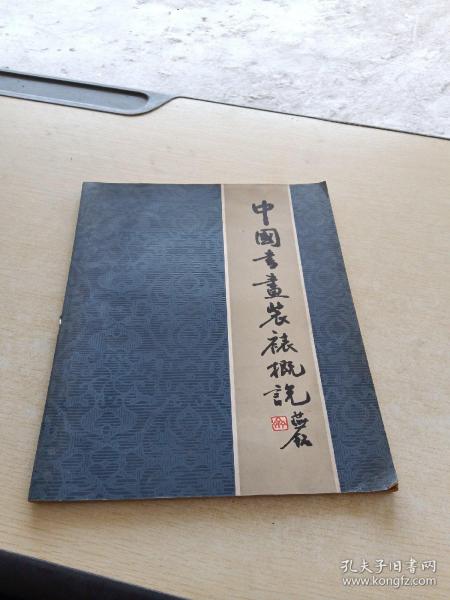 中國書畫裝裱概說
孔夫子旧书网
www.kongfz.com